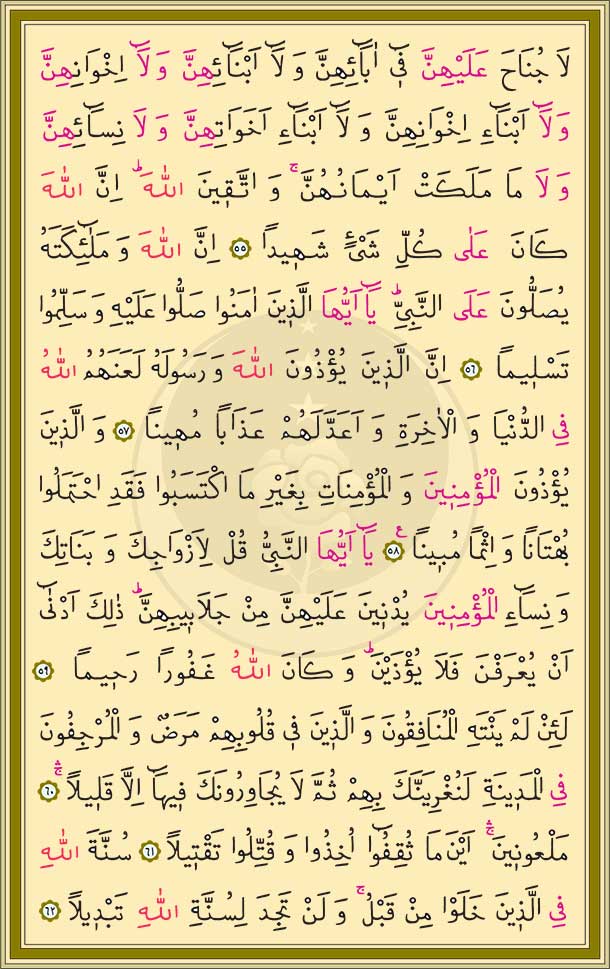 لَا جُنَاحَ عَلَيْهِنَّ فٖٓي اٰبَٓائِهِنَّ وَلَٓا اَبْنَٓائِهِنَّ وَلَٓا اِخْوَانِهِنَّ
وَلَٓا اَبْنَٓاءِ اِخْوَانِهِنَّ وَلَٓا اَبْنَٓاءِ اَخَوَاتِهِنَّ وَلَا نِسَٓائِهِنَّ
وَلَا مَا مَلَكَتْ اَيْمَانُهُنَّۚ وَاتَّقٖينَ اللّٰهَؕ اِنَّ اللّٰهَ
كَانَ عَلٰى كُلِّ شَيْءٍ شَهٖيداً ﴿٥٥﴾ اِنَّ اللّٰهَ وَمَلٰٓئِكَتَهُ
يُصَلُّونَ عَلَى النَّبِيِّؕ يَٓا اَيُّهَا الَّذٖينَ اٰمَنُوا صَلُّوا عَلَيْهِ وَسَلِّمُوا
تَسْلٖيماً ﴿٥٦﴾ اِنَّ الَّذٖينَ يُؤْذُونَ اللّٰهَ وَرَسُولَهُ لَعَنَهُمُ اللّٰهُ
فِي الدُّنْيَا وَالْاٰخِرَةِ وَاَعَدَّ لَهُمْ عَذَاباً مُهٖيناً ﴿٥٧﴾ وَالَّذٖينَ
يُؤْذُونَ الْمُؤْمِنٖينَ وَالْمُؤْمِنَاتِ بِغَيْرِ مَا اكْتَسَبُوا فَقَدِ احْتَمَلُوا
بُهْتَاناً وَاِثْماً مُبٖيناً ﴿٥٨﴾ ع يَٓا اَيُّهَا النَّبِيُّ قُلْ لِاَزْوَاجِكَ وَبَنَاتِكَ
وَنِسَٓاءِ الْمُؤْمِنٖينَ يُدْنٖينَ عَلَيْهِنَّ مِنْ جَلَابٖيبِهِنَّؕ ذٰلِكَ اَدْنٰٓى
اَنْ يُعْرَفْنَ فَلَا يُؤْذَيْنَؕ وَكَانَ اللّٰهُ غَفُوراً رَحٖيماً ﴿٥٩﴾
لَئِنْ لَمْ يَنْتَهِ الْمُنَافِقُونَ وَالَّذٖينَ فٖي قُلُوبِهِمْ مَرَضٌ وَالْمُرْجِفُونَ
فِي الْمَدٖينَةِ لَنُغْرِيَنَّكَ بِهِمْ ثُمَّ لَا يُجَاوِرُونَكَ فٖيهَٓا اِلَّا قَلٖيلاًۚۛ ﴿٦٠﴾
مَلْعُونٖينَۚۛ اَيْنَمَا ثُقِفُٓوا اُخِذُوا وَقُتِّلُوا تَقْتٖيلاً ﴿٦١﴾ سُنَّةَ اللّٰهِ
فِي الَّذٖينَ خَلَوْا مِنْ قَبْلُۚ وَلَنْ تَجِدَ لِسُنَّةِ اللّٰهِ تَبْدٖيلاً ﴿٦٢﴾